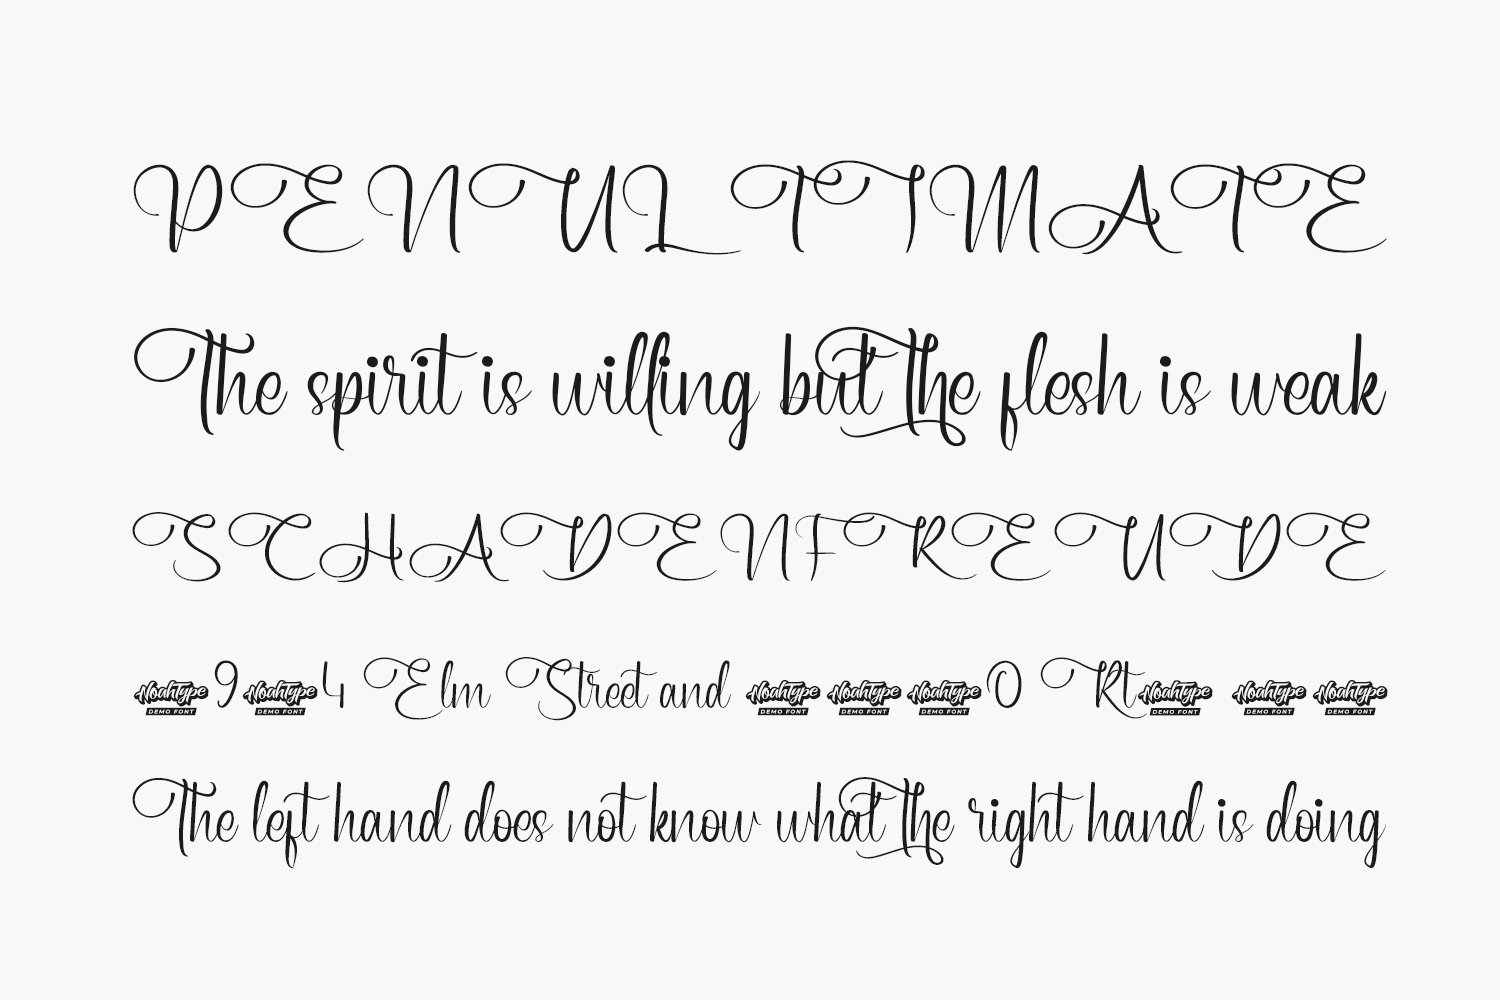 PENULTIMATE
The spirit is willing but the flesh is weak
SCHADENFREUDE
NoahType DEMO FONT 9 NoahType DEMO FONT 4 Elm Street and NoahType DEMO FONT NoahType DEMO FONT NoahType DEMO FONT 0 Rt NoahType DEMO FONT NoahType DEMO FONT NoahType DEMO FONT
The left hand does not know what the right hand is doing